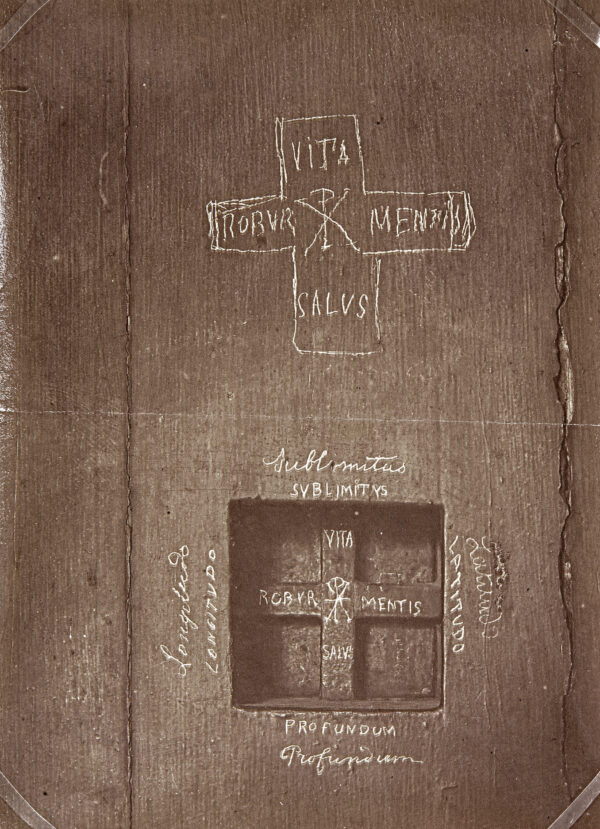 VITA
ROBVR ☧ MENTIS
SALVS
Sublimitus
SVBLIMITYS
Longitudo
LONGITVDO
VITA
ROBVR ☧ MENTIS
SALVS
LATITUDO
PROFUNDUM
Profundum